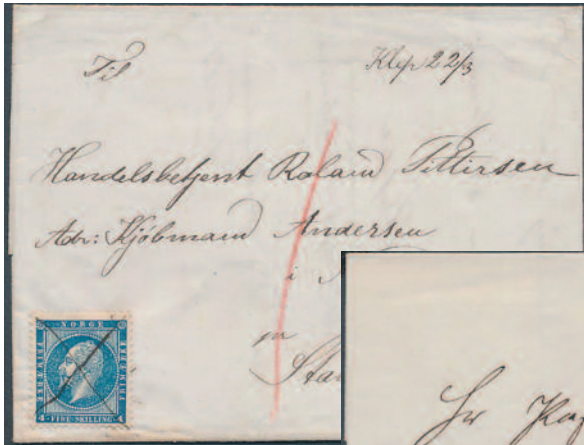 Til
Klep 22/3
Handelsbetjent Roland Pittersen
Adr: Kjöbmand Andersen
i
pr
Sta
NORGE
FRIMÆRKE
FRIMÆRKE
4 FIRE SKILLING 4
Hr